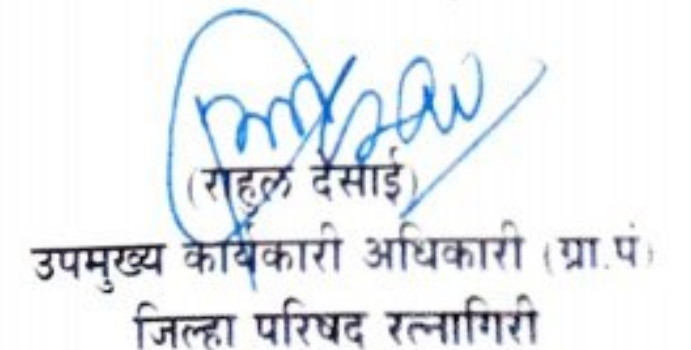 (राहुल देसाई)
उपमुख्य कार्यकारी अधिकारी (ग्रा.पं)
जिल्हा परिषद रत्नागिरी